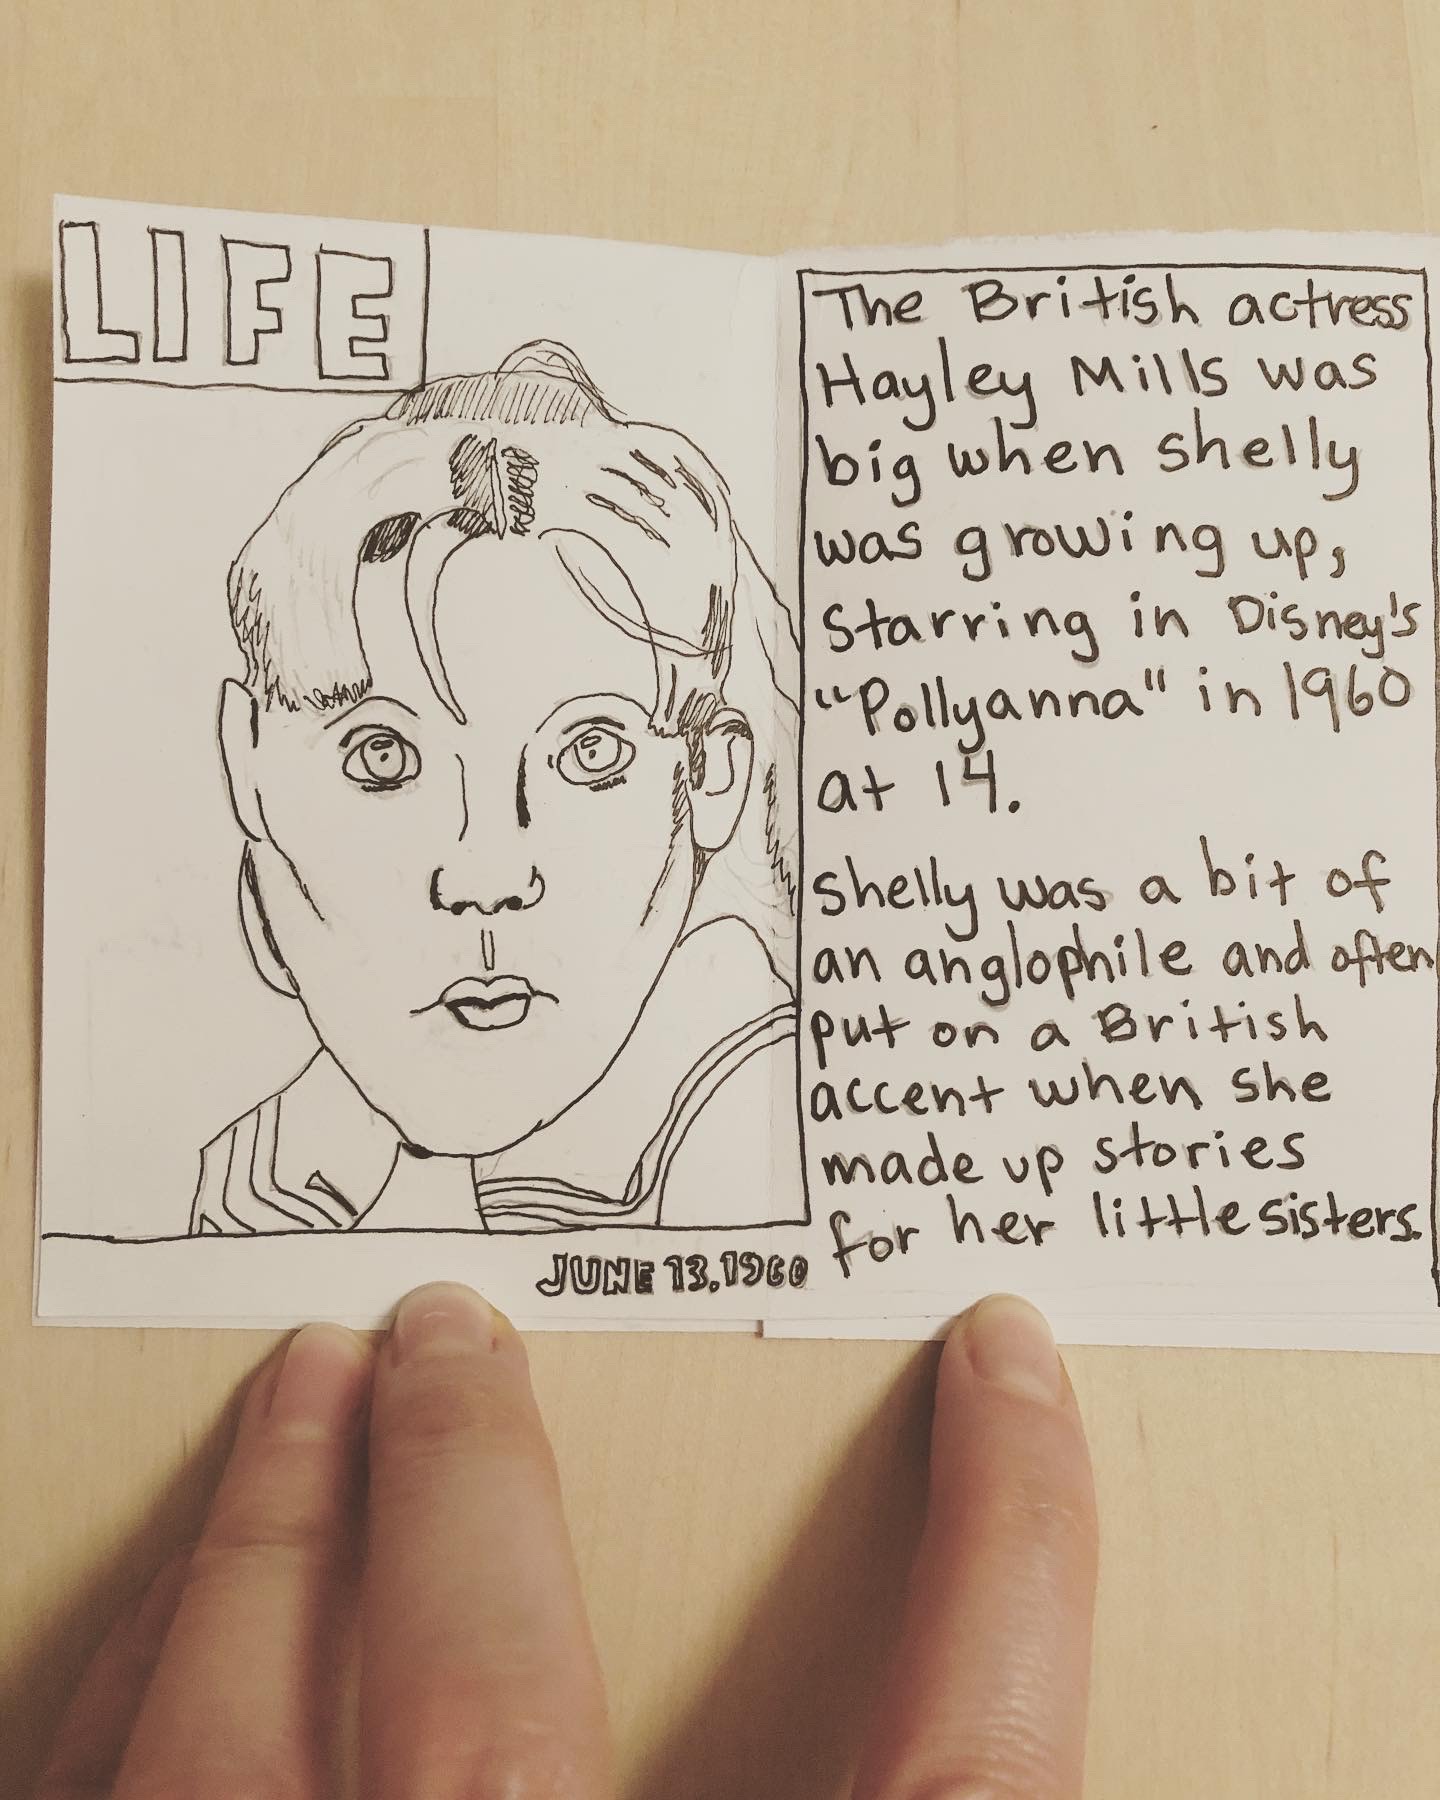 LIFE
JUNE 13.1960
The British actress
Hayley Mills was
big when shelly
was growing up,
starring in Disney's
"Pollyanna" in 1960
at 14.
shelly was a bit of
an anglophile and often
put on a British
accent when she
made up stories
for her little sisters.